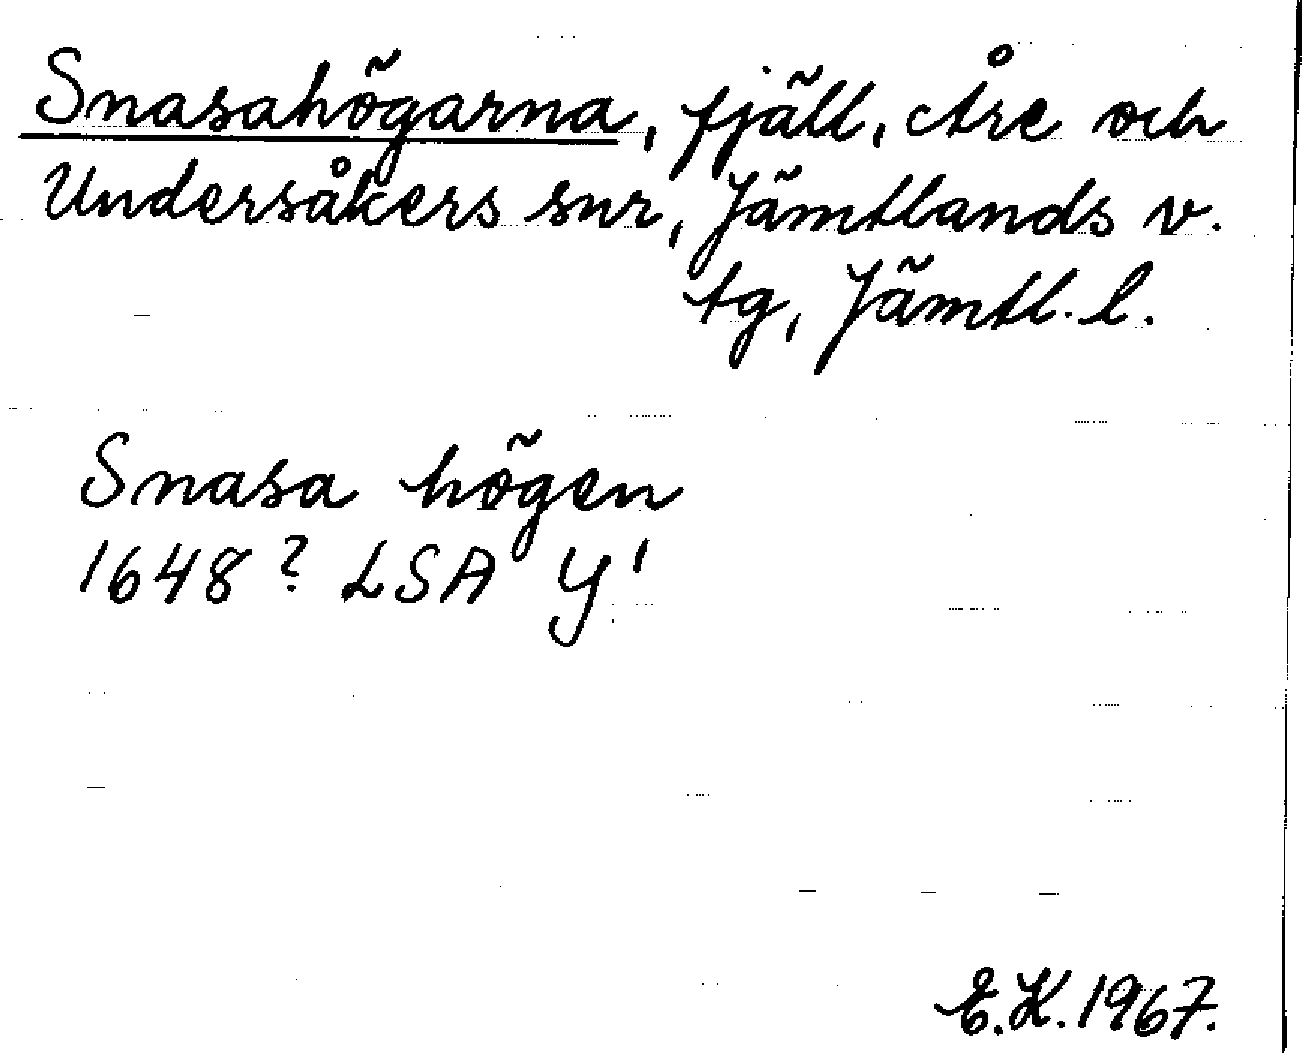 Snasahögarna, fjäll, Åre och
Undersåkers snr, Jämtlands v.
tg, Jämtl. l.
Snasa högen
1648? LSA Y¹
E.K. 1967.